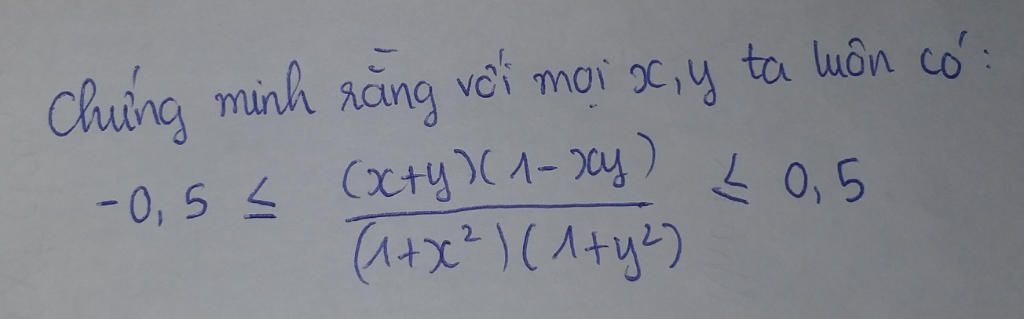 Chứng minh rằng với mọi x, y ta luôn có:
-0,5 ≤ \frac{(x+y)(1-xy)}{(1+x²)(1+y²)} ≤ 0,5